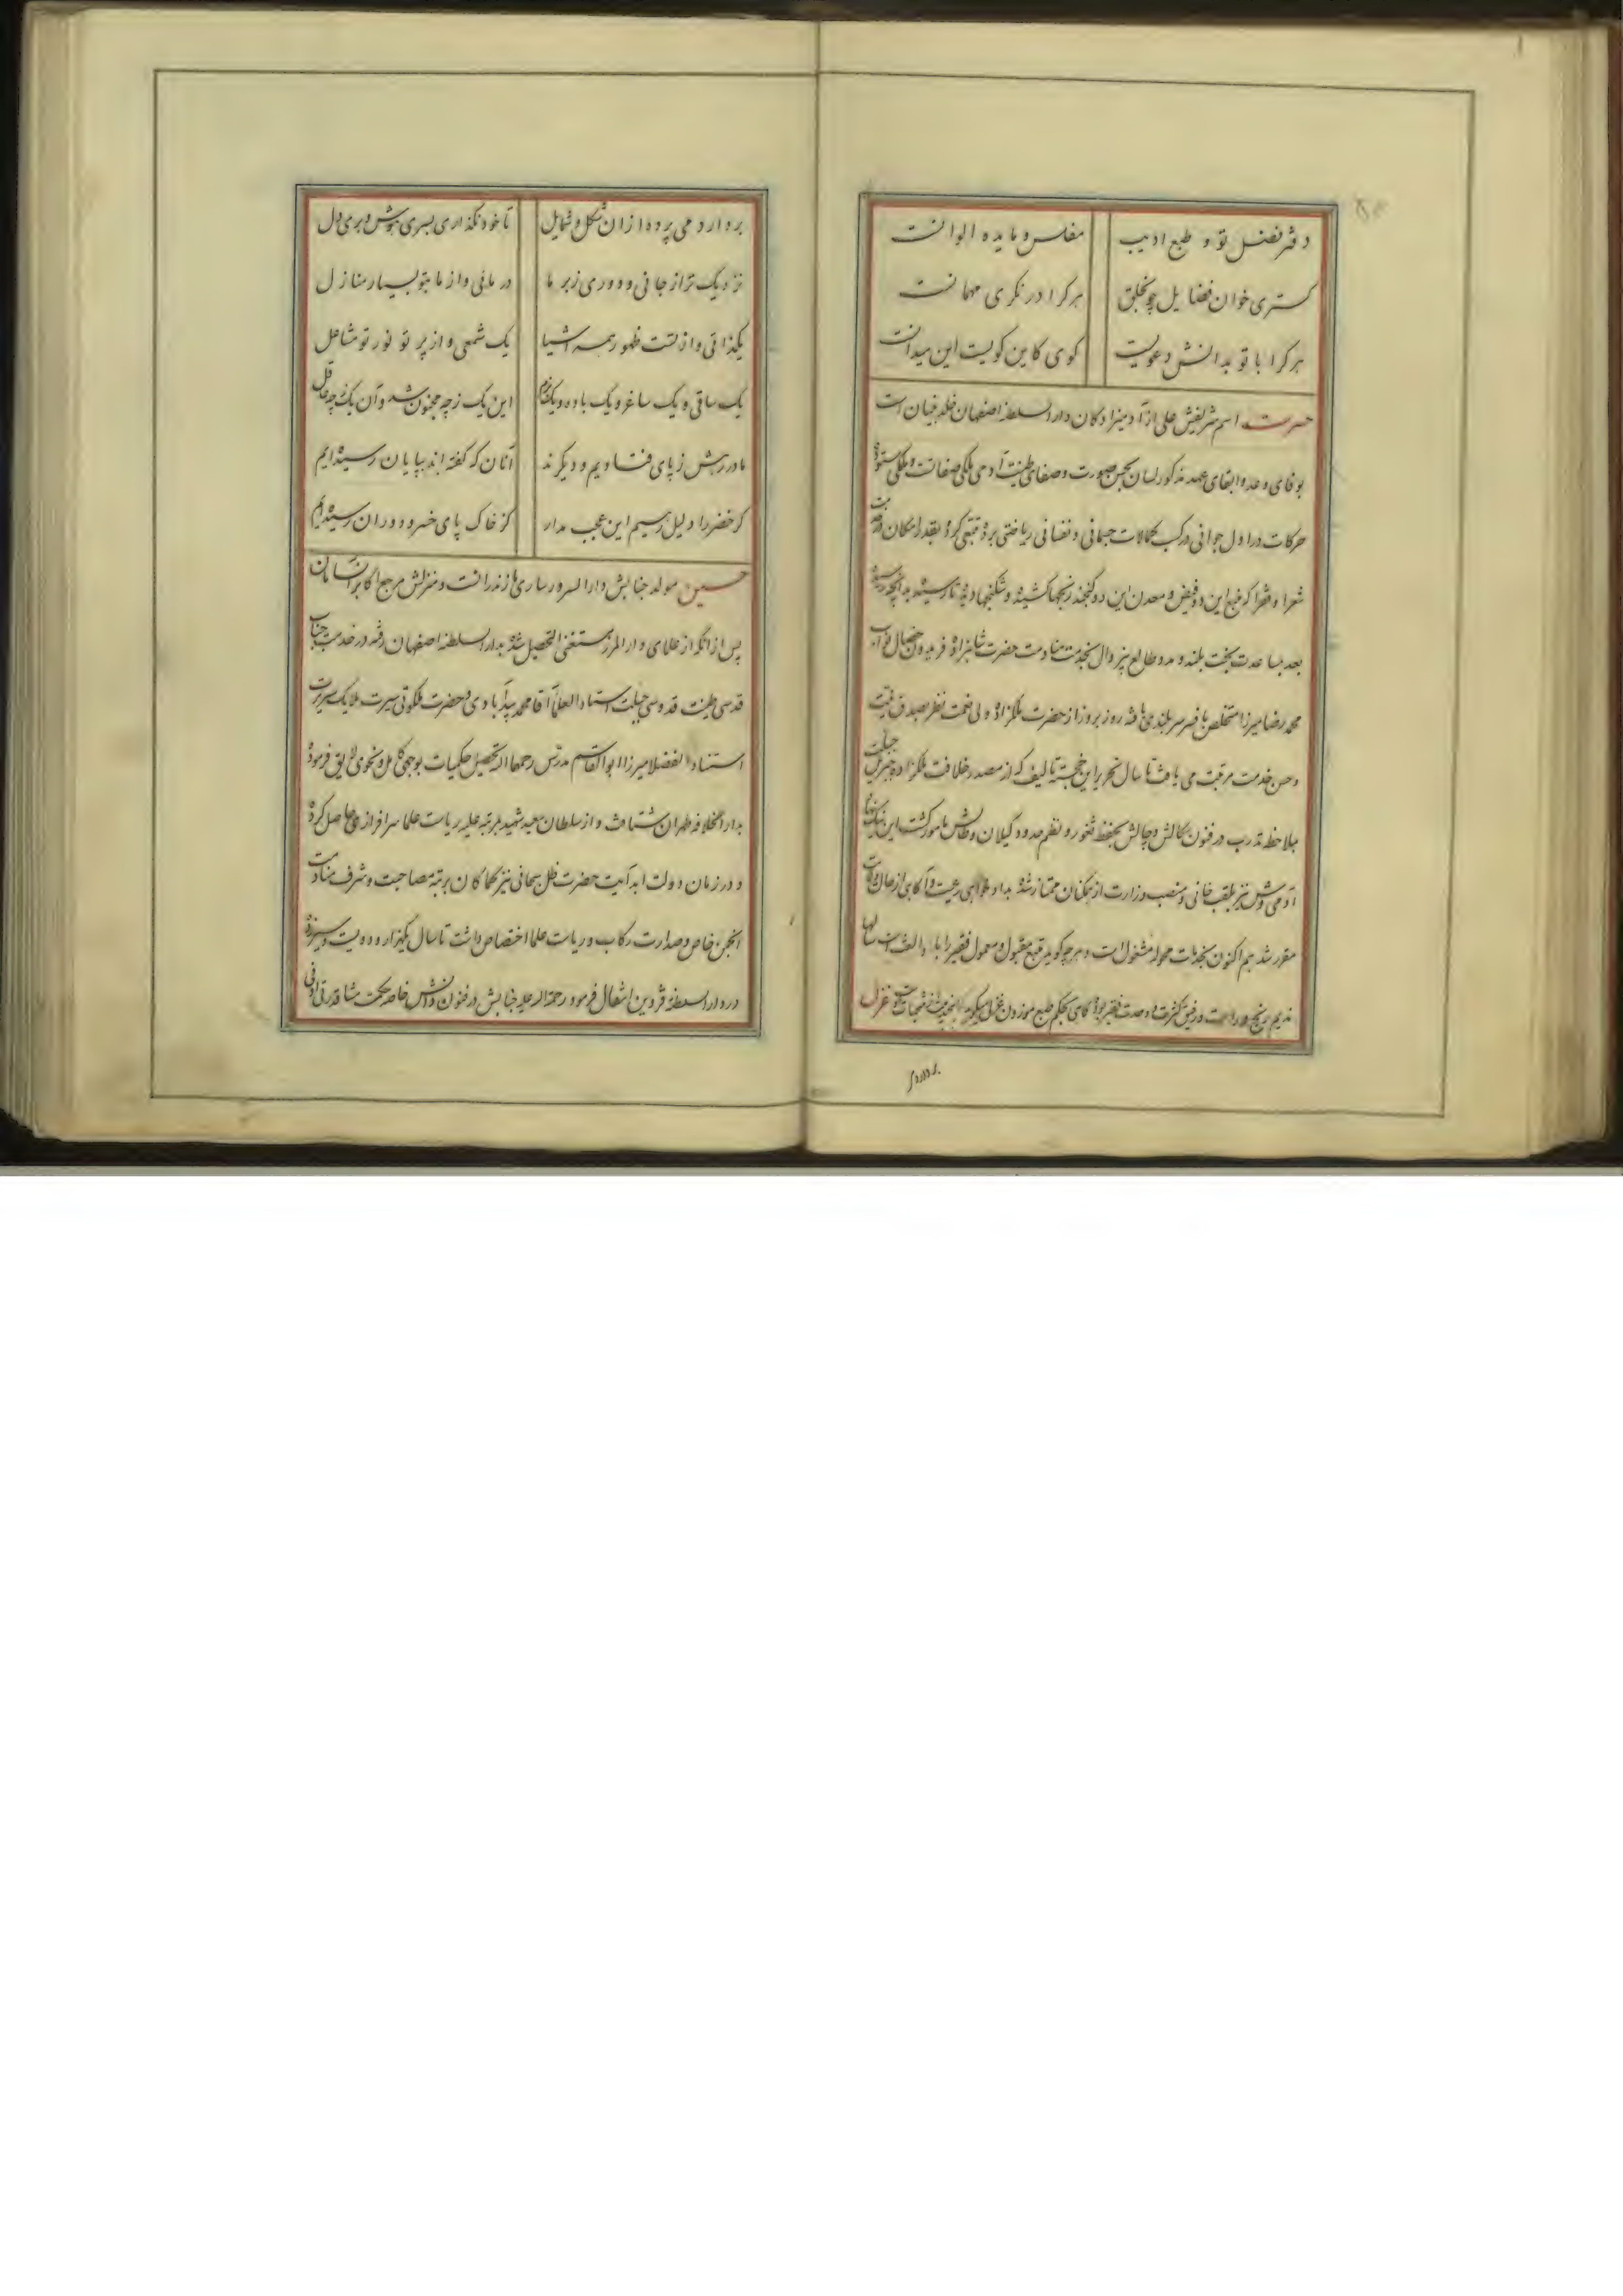 دفتر فضل تو و طبع ادیب مفلس و مایده الوانست
کستری خوان فضایل چو بخلق هر کرا در نکری مهمانست
هر کرا با تو بدانش دعویست کوی کاین کویست این میدانست
حسرت اسم شریفش علی از آدمیزادکان دار السلطنه اصفهان خلد بنیان است
بوفای وعده و ابقای عهد مذکور لسان بحسن صورت و صفای طینت آدمی ملکی صفاتست و ملکی ستوده
حرکات در اول جوانی در کسب کمالات جسمانی و نفسانی ریاضتی برده تتبعی کرده بقدر امکان در خدمت
شعرا و فقرا که منبع این دو فیض و معدن این دو کنجند رنجها کشیده و شکنجها دیده تا رسیده بدانچه رسیده
بعد بمساعدت بخت بلند و مدد طالع بیزوال بخدمت منادمت حضرت شاهزاده فریدون خصال نواب
محمد رضا میرزا متخلص بافسر سربلندی یافته روز بروز از حضرت ملکزاده ولی نعمت نظر بصدق نیت
و حسن خدمت مرتبت می یافت تا سال تحریر این خجسته تالیف که از مصدر خلافت ملکزاده
بملاحظه تدرب در فنون بحفظ ثغور و نظم حدود کیلان و طالش مامور کشت این نیک
آدمی وش نیز بلقب خانی و منصب وزارت از همکنان ممتاز شده بداد خواهی رعیت و آکاهی از حال ولات
مقرر شد هم اکنون بخدمات محوله مشغول است و هرچه کوید متبع مقبول و معمول فقیر را با او الفت است سالها
ندیم رنج و راحت و رفیق کثرت و وحدت فقیر بوده کاهی بحکم طبع موزون غزل میکوید غزل
بردار دمی پرده از ان شکل و شمایل تا خود نکذاری بسری هوش و بری دل
نزدیک تر از جانی و دوری ز بر ما در مائی و از ما بتو بسیار منازل
یکذاتی و از تست ظهور همه اشیا یک شمعی و از پرتو نور تو مشاعل
یک ساقی و یک ساغر و یک باده و یک بزم این یک ز چه مجنون شد و آن یک ز چه عاقل
ما در رهش ز پای فتادیم و دیکرند آنان که کفته اند بپایان رسیده‌ایم
کر خضر را دلیل رهیم این عجب مدار کز خاک پای خسرو دوران رسیده‌ایم
حسین مولد جنابش دار السرور ساری مازندرانست و منزلش مرجع اکابر انسان
پس از انکه از علمای دار المرز مستغنی التحصیل شده بدار السلطنه اصفهان رفته در خدمت جناب
قدسی طینت قدوسی جبلت استاد العلما آقا محمد بیدآبادی و حضرت ملکوتی سیرت ملایک سریرت
استناد الفضلا میرزا ابو القاسم مدرس رحمهما الله تحصیل حکمیات بوجهی کامل و نحوی لایق فرموده
بدار الخلافه طهران شتافت و از سلطان سعید شهید بمرتبه علیه ریاست علما سرافرازی حاصل کرده
و در زمان دولت ابد آیت حضرت ظل سبحانی نیز کماکان برتبه مصاحبت و شرف منادمت
انجمن خاص و صدارت رکاب و ریاست علما اختصاص داشت تا سال یکهزار و دویست و سیزده
در دار السلطنه قزوین انتقال فرمود رحمة الله علیه جنابش در فنون دانش خاصه حکمت مشا قدرتی وافی